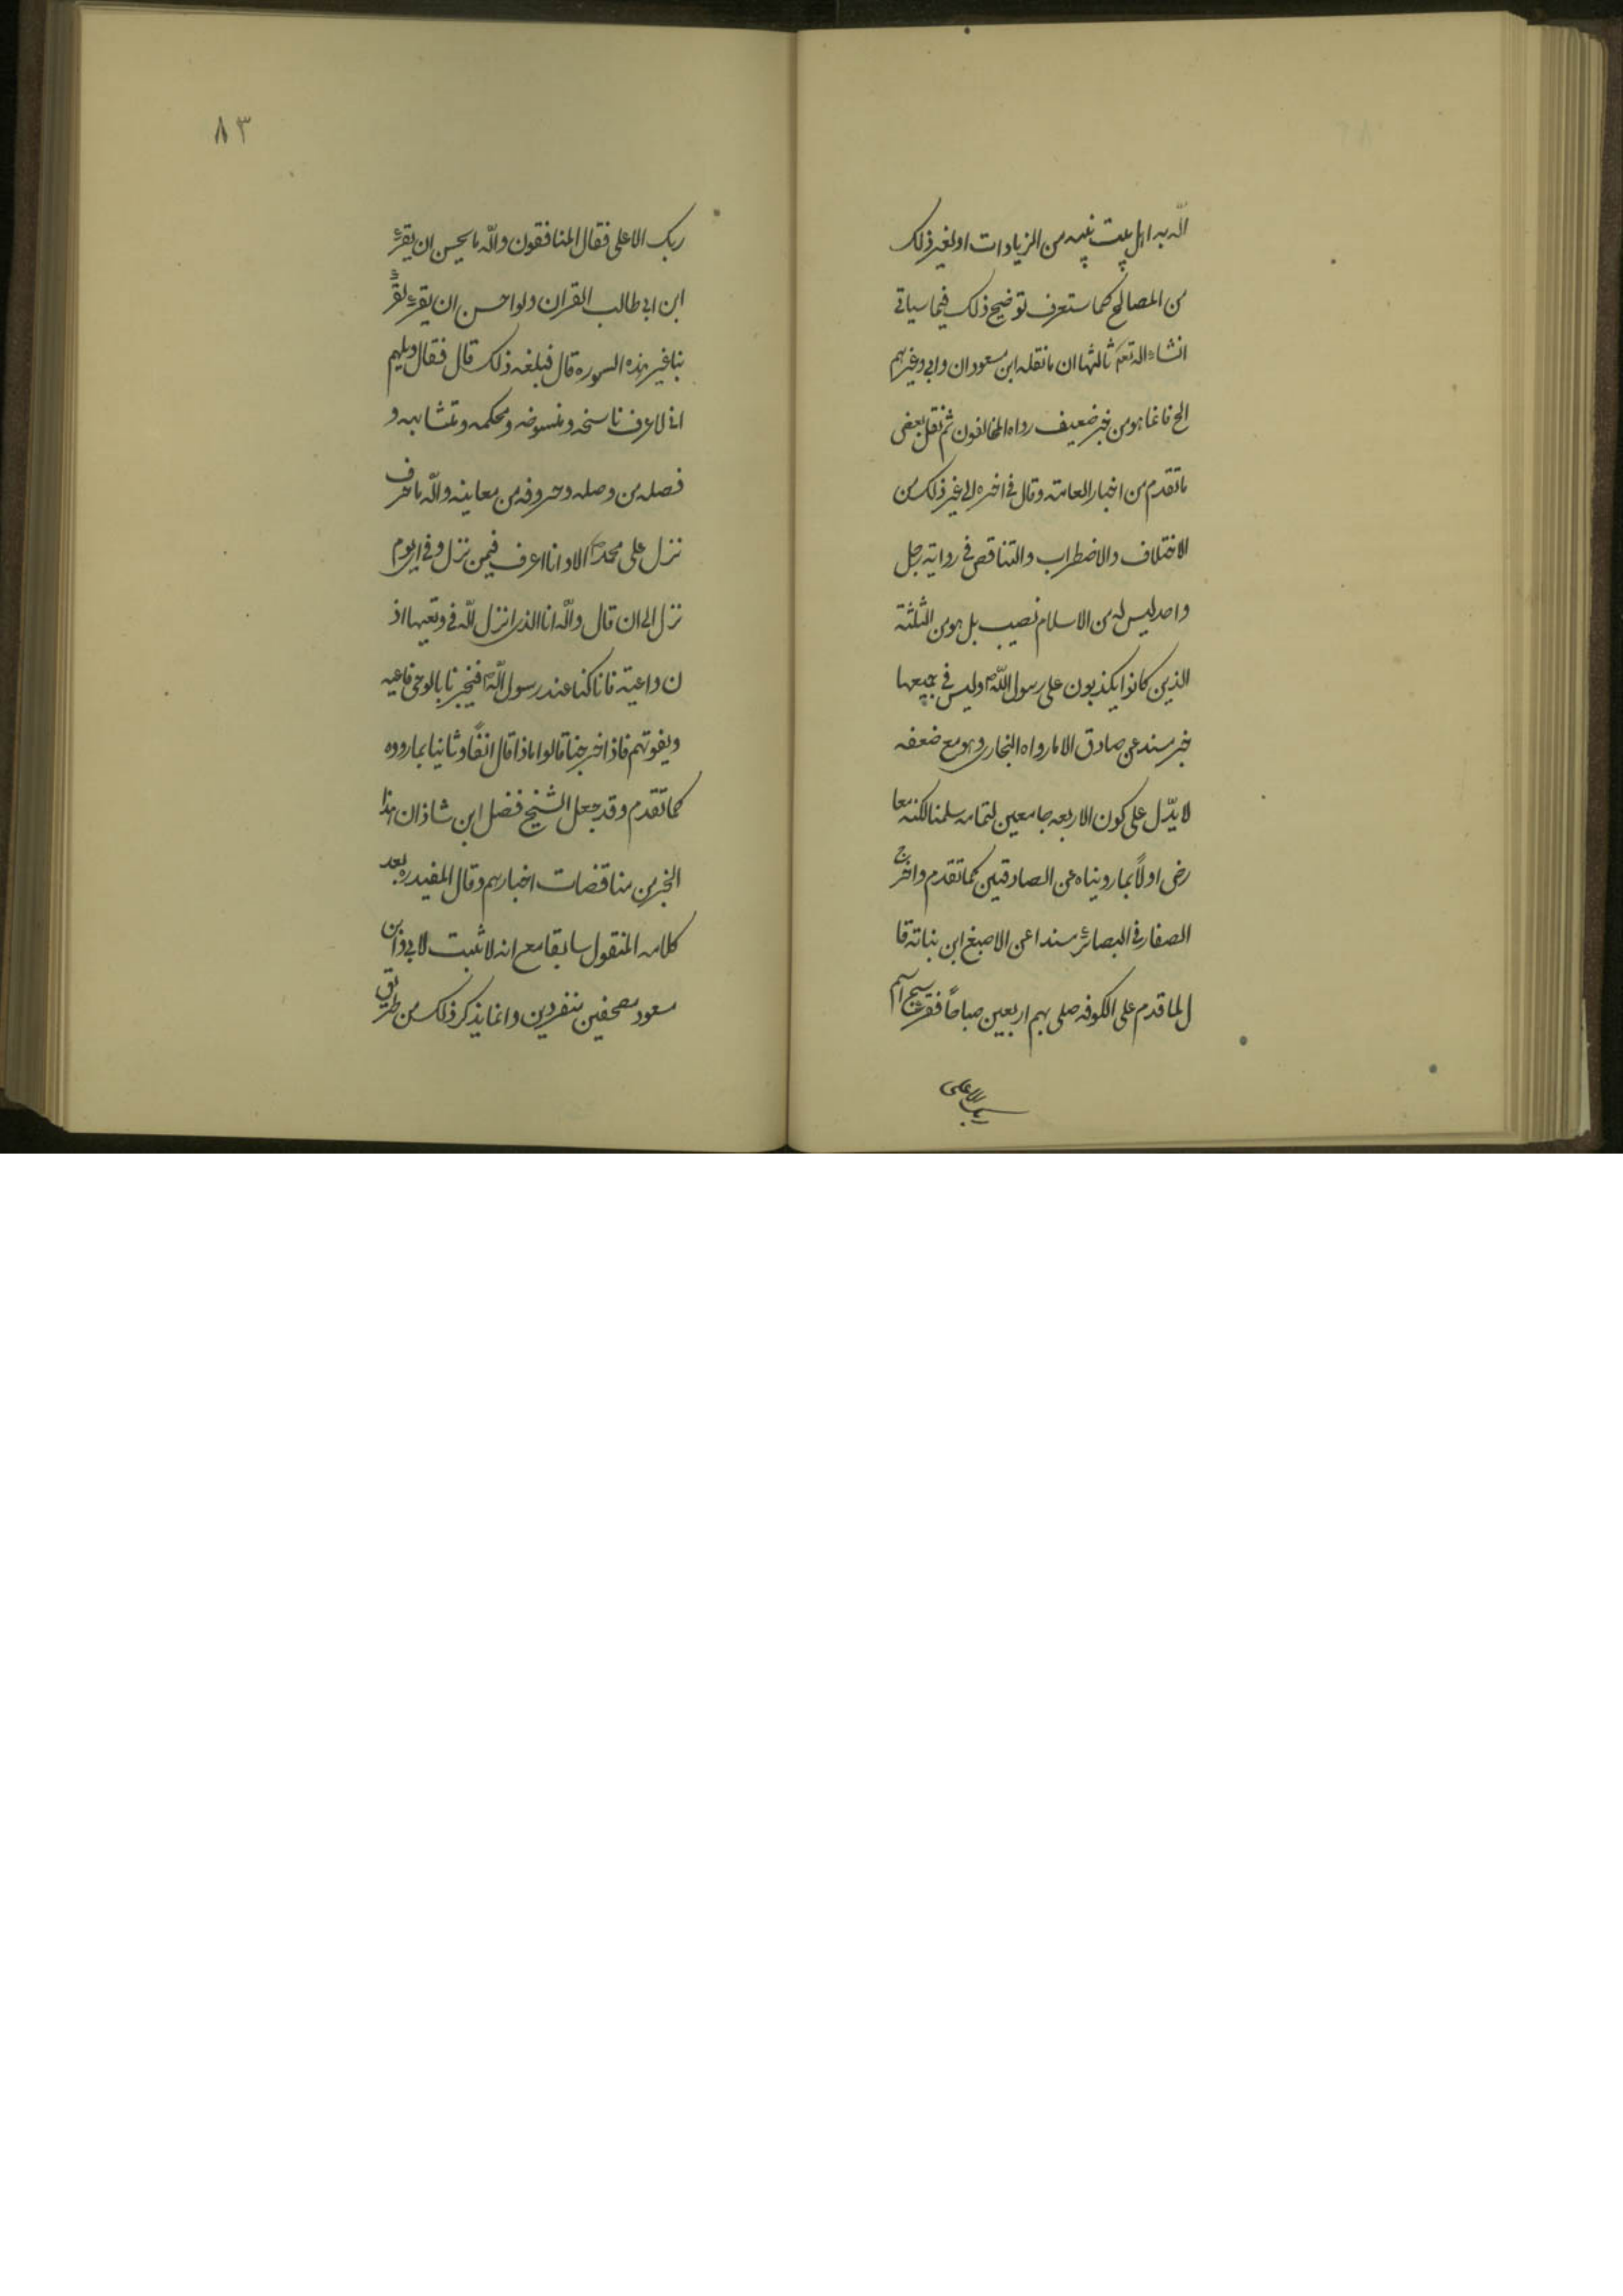 الله به اهل بيت نبيه من الزيادات او لغير ذلك
من المصالح كما ستعرف توضيح ذلك فيما سياتى
انشاء الله تعم ثالثها ان ما نقله ابن مسعود ان وابى وغيرهم
الخ فانما هو من خبر ضعيف رواه المخالفون ثم نقل بعض
ما تقدم من اخبار العامة وقال فى اخره الى غير ذلك من
الاختلاف والاضطراب والتناقص فى رواية رجل
واحد ليس له من الاسلام نصيب بل هو من الثلثة
الذين كانوا يكذبون على رسول الله ص وليس فى جميعها
خبر مسند عن صادق الا ما رواه البخارى وهو مع ضعفه
لا يدّل على كون الاربعه جامعين لتمامه سلمنا لكنه معا
رض اولاً بما رويناه عن الصادقين كما تقدم واخرج
الصفار فى البصائر مسندا عن الاصبغ ابن نباته قا
ل لما قدم على الكوفه صلى بهم اربعين صباحاً فقرء سبح اسم
ربك الاعلى
٨٣
ربك الاعلى فقال المنافقون والله ما يحسن ان يقرء
ابن ابى طالب القران ولو احسن ان يقرء لقرء
بنا غير هذه السوره قال فبلغه ذلك قال فقال ويلهم
انى لاعرف ناسخه ومنسوخه ومحكمه ومتشابهه و
فصله من وصله وحروفه من معاينه والله ما حرف
نزل على محمد ص الا وانا اعرف فيمن نزل وفى اى يوم
نزل الى ان قال والله انا الذى انزل الله فى وتعيها اذ
ن واعية فانا كنا عند رسول الله ص فيخبرنا بالوحى فاعيه
ويفوتهم فاذا خرجنا قالوا ماذا قال انفًا وثانيا بما رووه
كما تقدم وقد جعل الشيخ فضل ابن شاذان هذا
الخبر من مناقضات اخبارهم وقال المفيد ره بعد
كلامه المنقول سابقا مع انه لا ثبت لابى وابن
مسعود مصحفين منفردين وانما يذكر ذلك من طريق